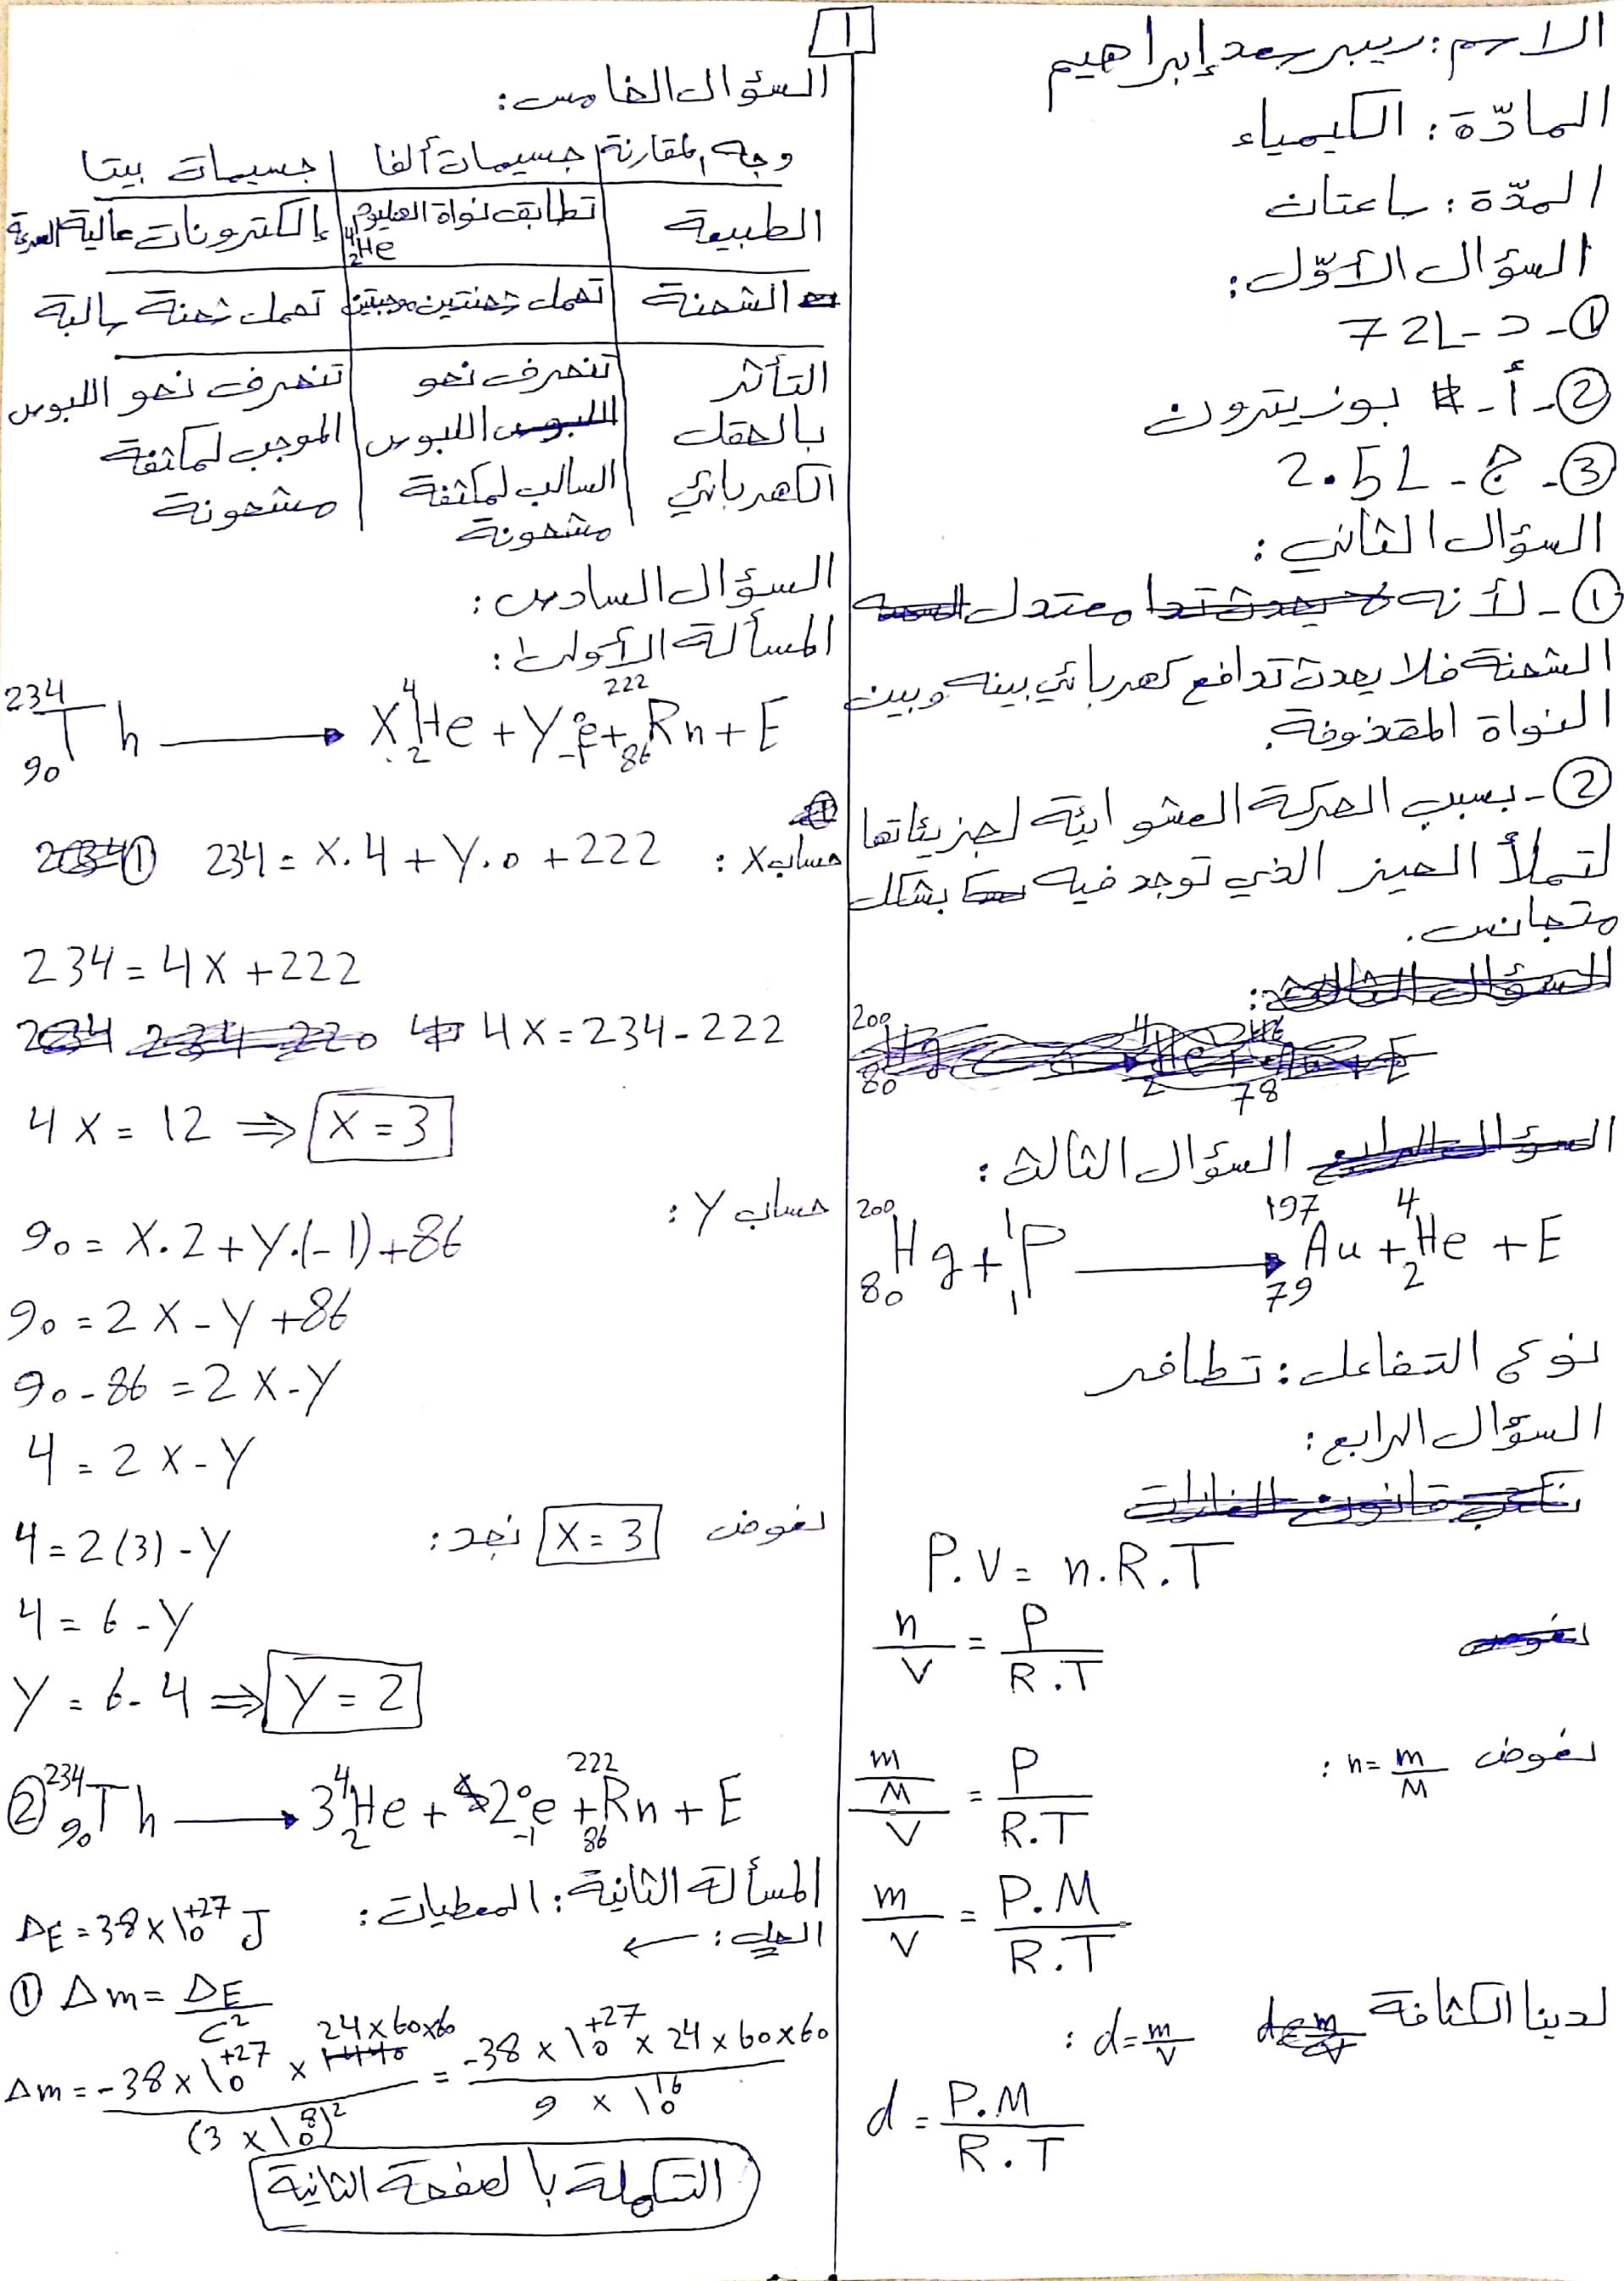 1
الاسم: ريبر سعد إبراهيم
المادّة: الكيمياء
المدّة: ساعتان
السؤال الأوّل:
①- د- 72L
②- أ- بوزيترون
③- ج- 2.5L
السؤال الثاني:
①- لأنه معتدل
الشحنة فلا يحدث تدافع كهربائي بينه وبين
النواة المقذوفة.
②- بسبب الحركة العشوائية لجزيئاتها
لتملأ الحيز الذي توجد فيه بشكل
متجانس.
السؤال الثالث:
²⁰⁰₈₀Hg + ¹₁P → ¹⁹⁷₇₉Au + ⁴₂He + E
نوع التفاعل: تطافر
السؤال الرابع:
P.V = n.R.T
n/V = P/R.T
نعوض n = m/M :
(m/M)/V = P/R.T
m/V = P.M/R.T
لدينا الكثافة d = m/V :
d = P.M/R.T
السؤال الخامس:
وجه المقارنة | جسيمات ألفا | جسيمات بيتا
الطبيعة | تطابق نواة الهليوم ⁴₂He | إلكترونات عالية السرعة
الشحنة | تحمل شحنتين موجبتين | تحمل شحنة سالبة
التأثر بالحقل الكهربائي | تنحرف نحو اللبوس السالب لمكثفة مشحونة | تنحرف نحو اللبوس الموجب لمكثفة مشحونة
السؤال السادس:
المسألة الأولى:
²³⁴₉₀Th → X ⁴₂He + Y ⁰₋₁e + ²²²₈₆Rn + E
حساب X :
① 234 = X.4 + Y.0 + 222
234 = 4X + 222
4X = 234 - 222
4X = 12 ⇒ X = 3
حساب Y :
90 = X.2 + Y.(-1) + 86
90 = 2X - Y + 86
90 - 86 = 2X - Y
4 = 2X - Y
نعوض X = 3 نجد:
4 = 2(3) - Y
4 = 6 - Y
Y = 6 - 4 ⇒ Y = 2
② ²³⁴₉₀Th → 3 ⁴₂He + 2 ⁰₋₁e + ²²²₈₆Rn + E
المسألة الثانية: المعطيات:
ΔE = 38 × 10⁺²⁷ J
الحل: ←
① Δm = ΔE/C²
Δm = -38 × 10⁺²⁷ × 24×60×60 / (3 × 10⁸)² = -38 × 10⁺²⁷ × 24 × 60 × 60 / 9 × 10¹⁶
التكملة بالصفحة الثانية